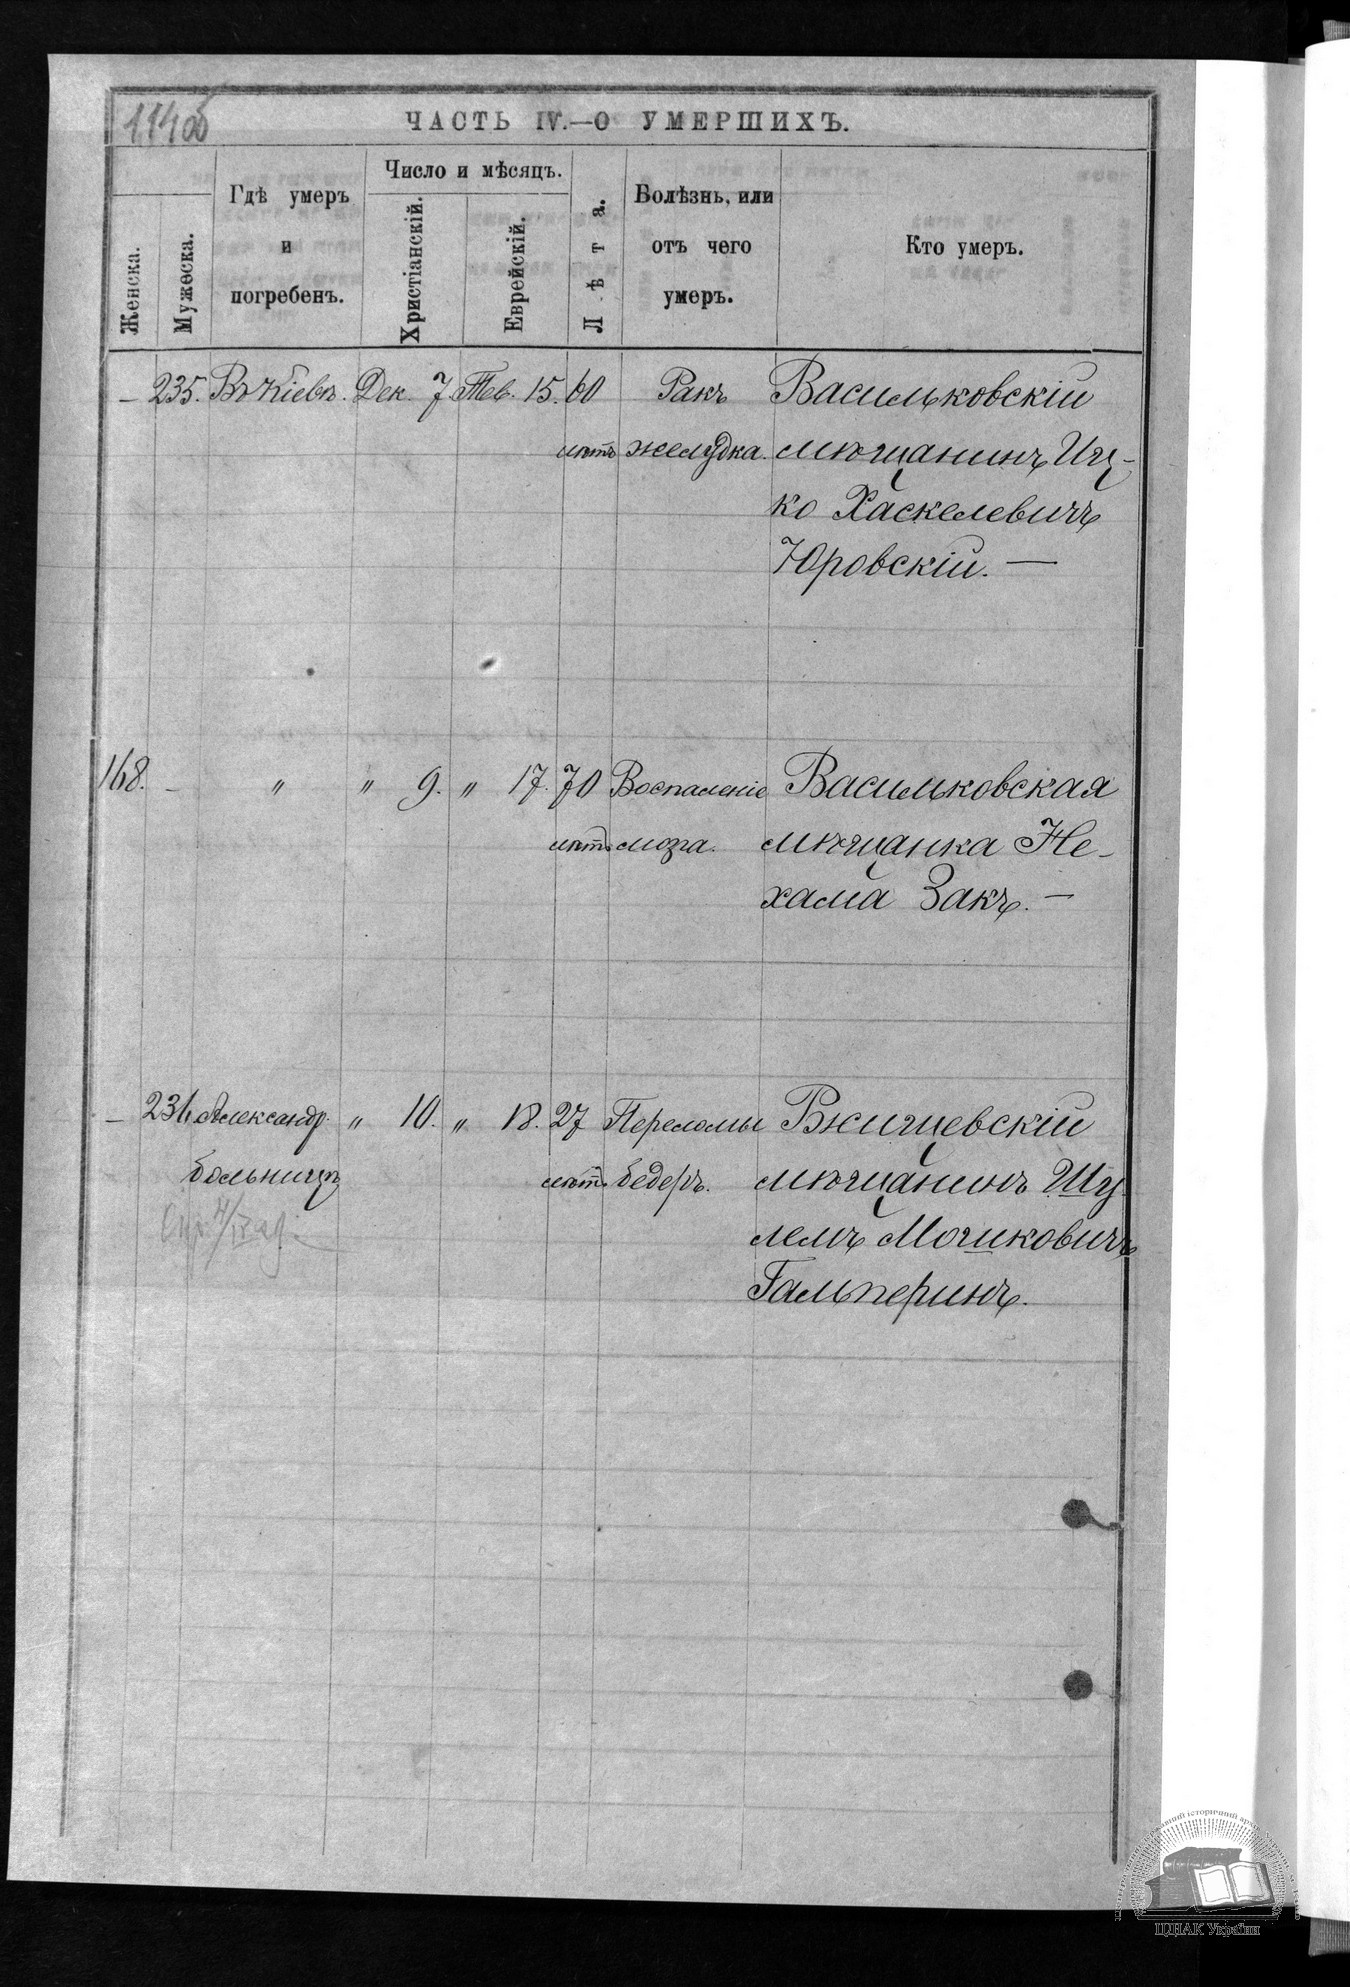 114об
ЧАСТЬ IV.—О УМЕРШИХЪ.
Женска.
Мужеска.
Гдѣ умеръ
и
погребенъ.
Число и мѣсяцъ.
Христіанскій.
Еврейскій.
Лѣта.
Болѣзнь, или
отъ чего
умеръ.
Кто умеръ.
— 235. Въ Кіевѣ. Дек. 7. Тев. 15. 60 Ракъ Васильковскій
лѣтъ желудка. мѣщанинъ Иц-
ко Хаскелевичъ
Юровскій. —
168. — " " 9. " 17. 70 Воспаленіе Васильковская
лѣтъ мозга. мѣщанка Не-
хама Закъ. —
— 236. Александр. " 10. " 18. 27 Переломы Ржищевскій
больницѣ лѣтъ бедеръ. мѣщанинъ Шу-
лемъ Мошковичъ
Гальперинъ.
ЦДІАК України